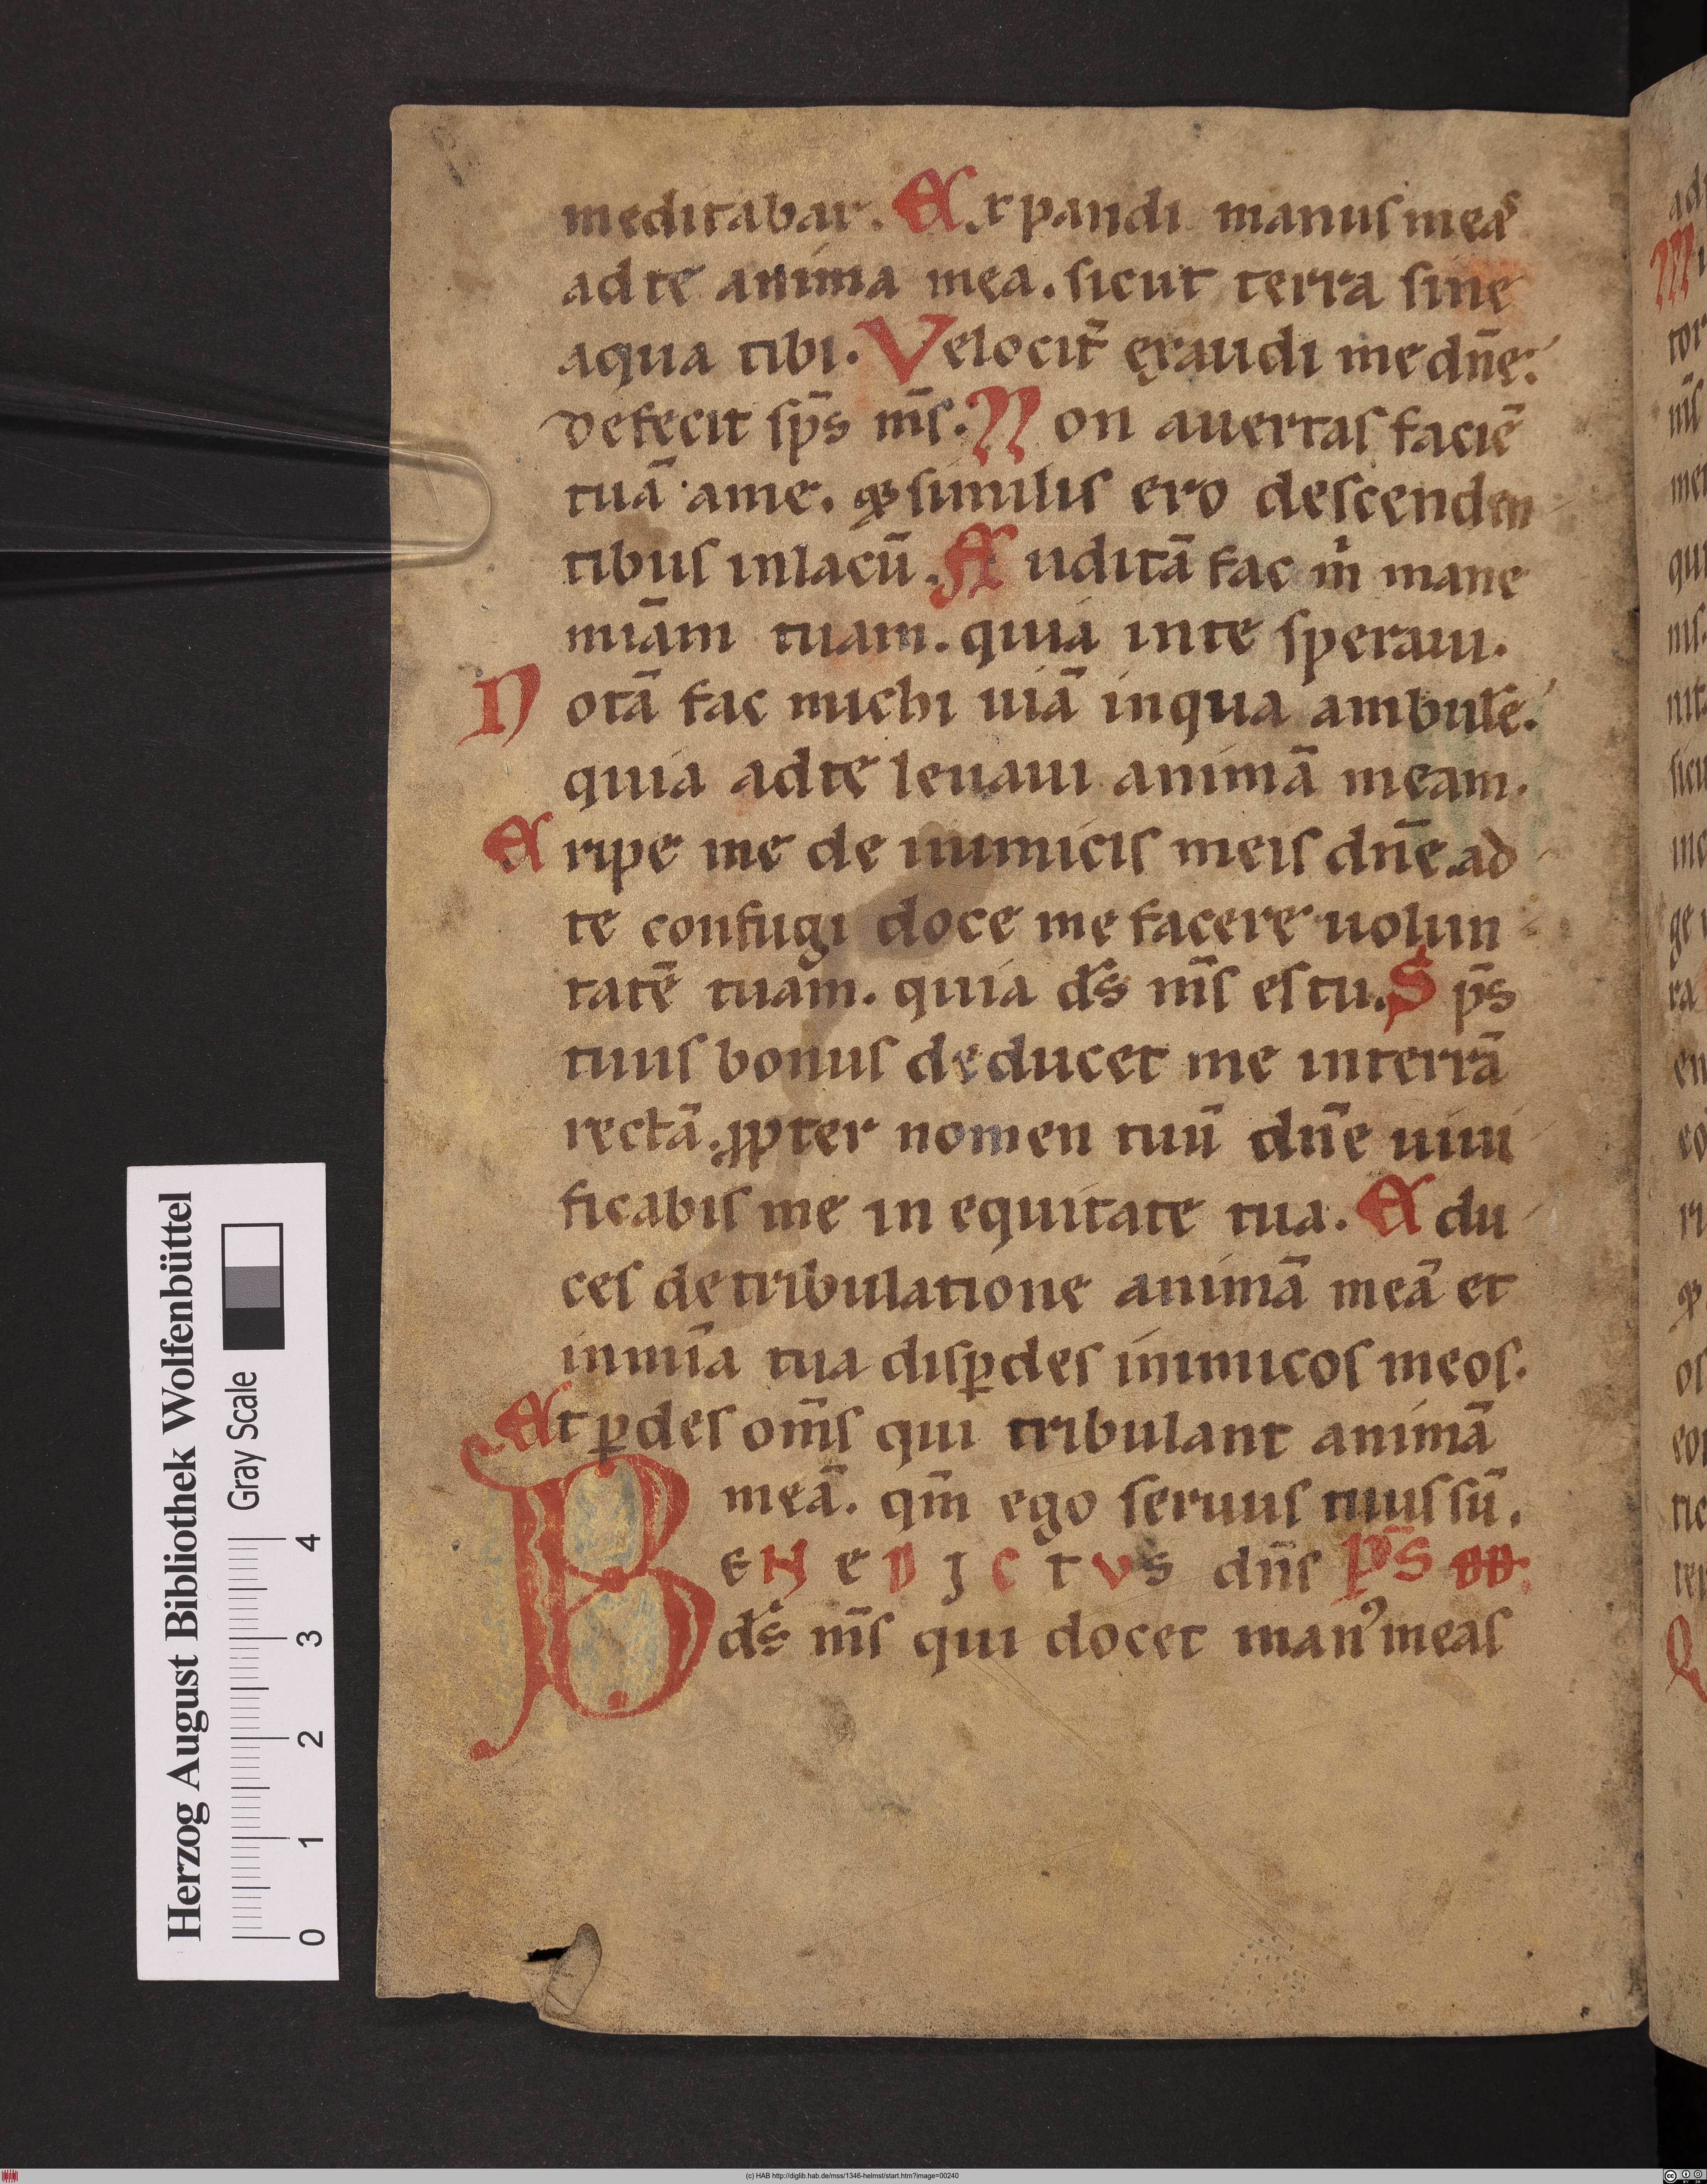 meditabar. Expandi manus meas
ad te anima mea. sicut terra sine
aqua tibi. Velocit̃ exaudi me dn̄e.
defecit sp̄s m̄s. Non auertas faciē
tuā a me. ꝙ similis ero descenden
tibus in lacū. Auditā fac m̍ mane
miām tuam. quia in te speraui.
Notā fac michi uiā in qua ambulē.
quia ad te leuaui animā meam.
Eripe me de inimicis meis dn̄e ad
te confugi doce me facere uolun
tatē tuam. quia d̄s m̄s es tu. Sp̄s
tuus bonus deducet me in terrā
rectā. ꝓpter nomen tuū dn̄e uiui
ficabis me in equitate tua. Edu
ces de tribulatione animā meā et
in mīa tua disꝑdes inimicos meos.
Et ꝑdes om̄s qui tribulant animā
meā. qm̄ ego seruus tuus sū.
BENEDICTVS dn̄s PS̄
d̄s m̄s qui docet manꝰ meas
Herzog August Bibliothek Wolfenbüttel
Gray Scale
0 1 2 3 4
(c) HAB http://diglib.hab.de/mss/1346-helmst/start.htm?image=00240